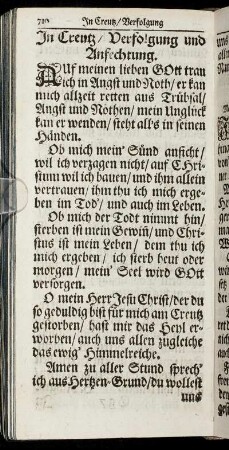 710 In Creutz/Verfolgung
In Creutz/ Verfolgung und
Anfechtung.
AUf meinen lieben GOtt trau
ich in Angst und Noth/ er kan
mich allzeit retten aus Trübsal/
Angst und Nöthen/ mein Unglück
kan er wenden/ steht alls in seinen
Händen.
Ob mich mein' Sünd anficht/
wil ich verzagen nicht/ auf CHri-
stum wil ich bauen/ und ihm allein
vertrauen/ ihm thu ich mich erge-
ben im Tod'/ und auch im Leben.
Ob mich der Todt nimmt hin/
sterben ist mein Gewiñ/ und Chri-
stus ist mein Leben/ dem thu ich
mich ergeben/ ich sterb heut oder
morgen/ mein' Seel wird GOtt
versorgen.
O mein HErr JEsu Christ/ der du
so geduldig bist für mich am Creutz
gestorben/ hast mir das Heyl er-
worben/ auch uns allen zugleiche
das ewig' Himmelreiche.
Amen zu aller Stund sprech'
ich aus Hertzen-Grund/ du wollest
uns